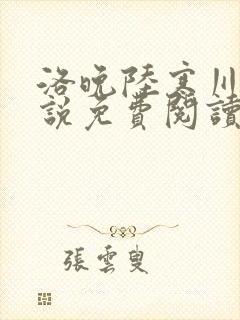 洛晚陸寒川
說免費閱讀
張雲叟